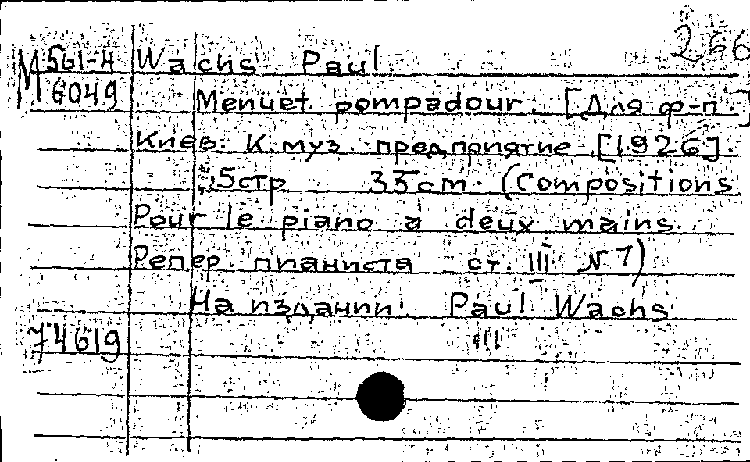 256
М 561-4 Wachs Paul
6049 Menuet pompadour. [Для ф-п.]
Киев. К. муз. предприятие [1926].
5стр 33см. (Compositions
Pour le piano à deux mains.
Репер. пианиста ст. III № 7)
На издании: Paul Wachs
74619